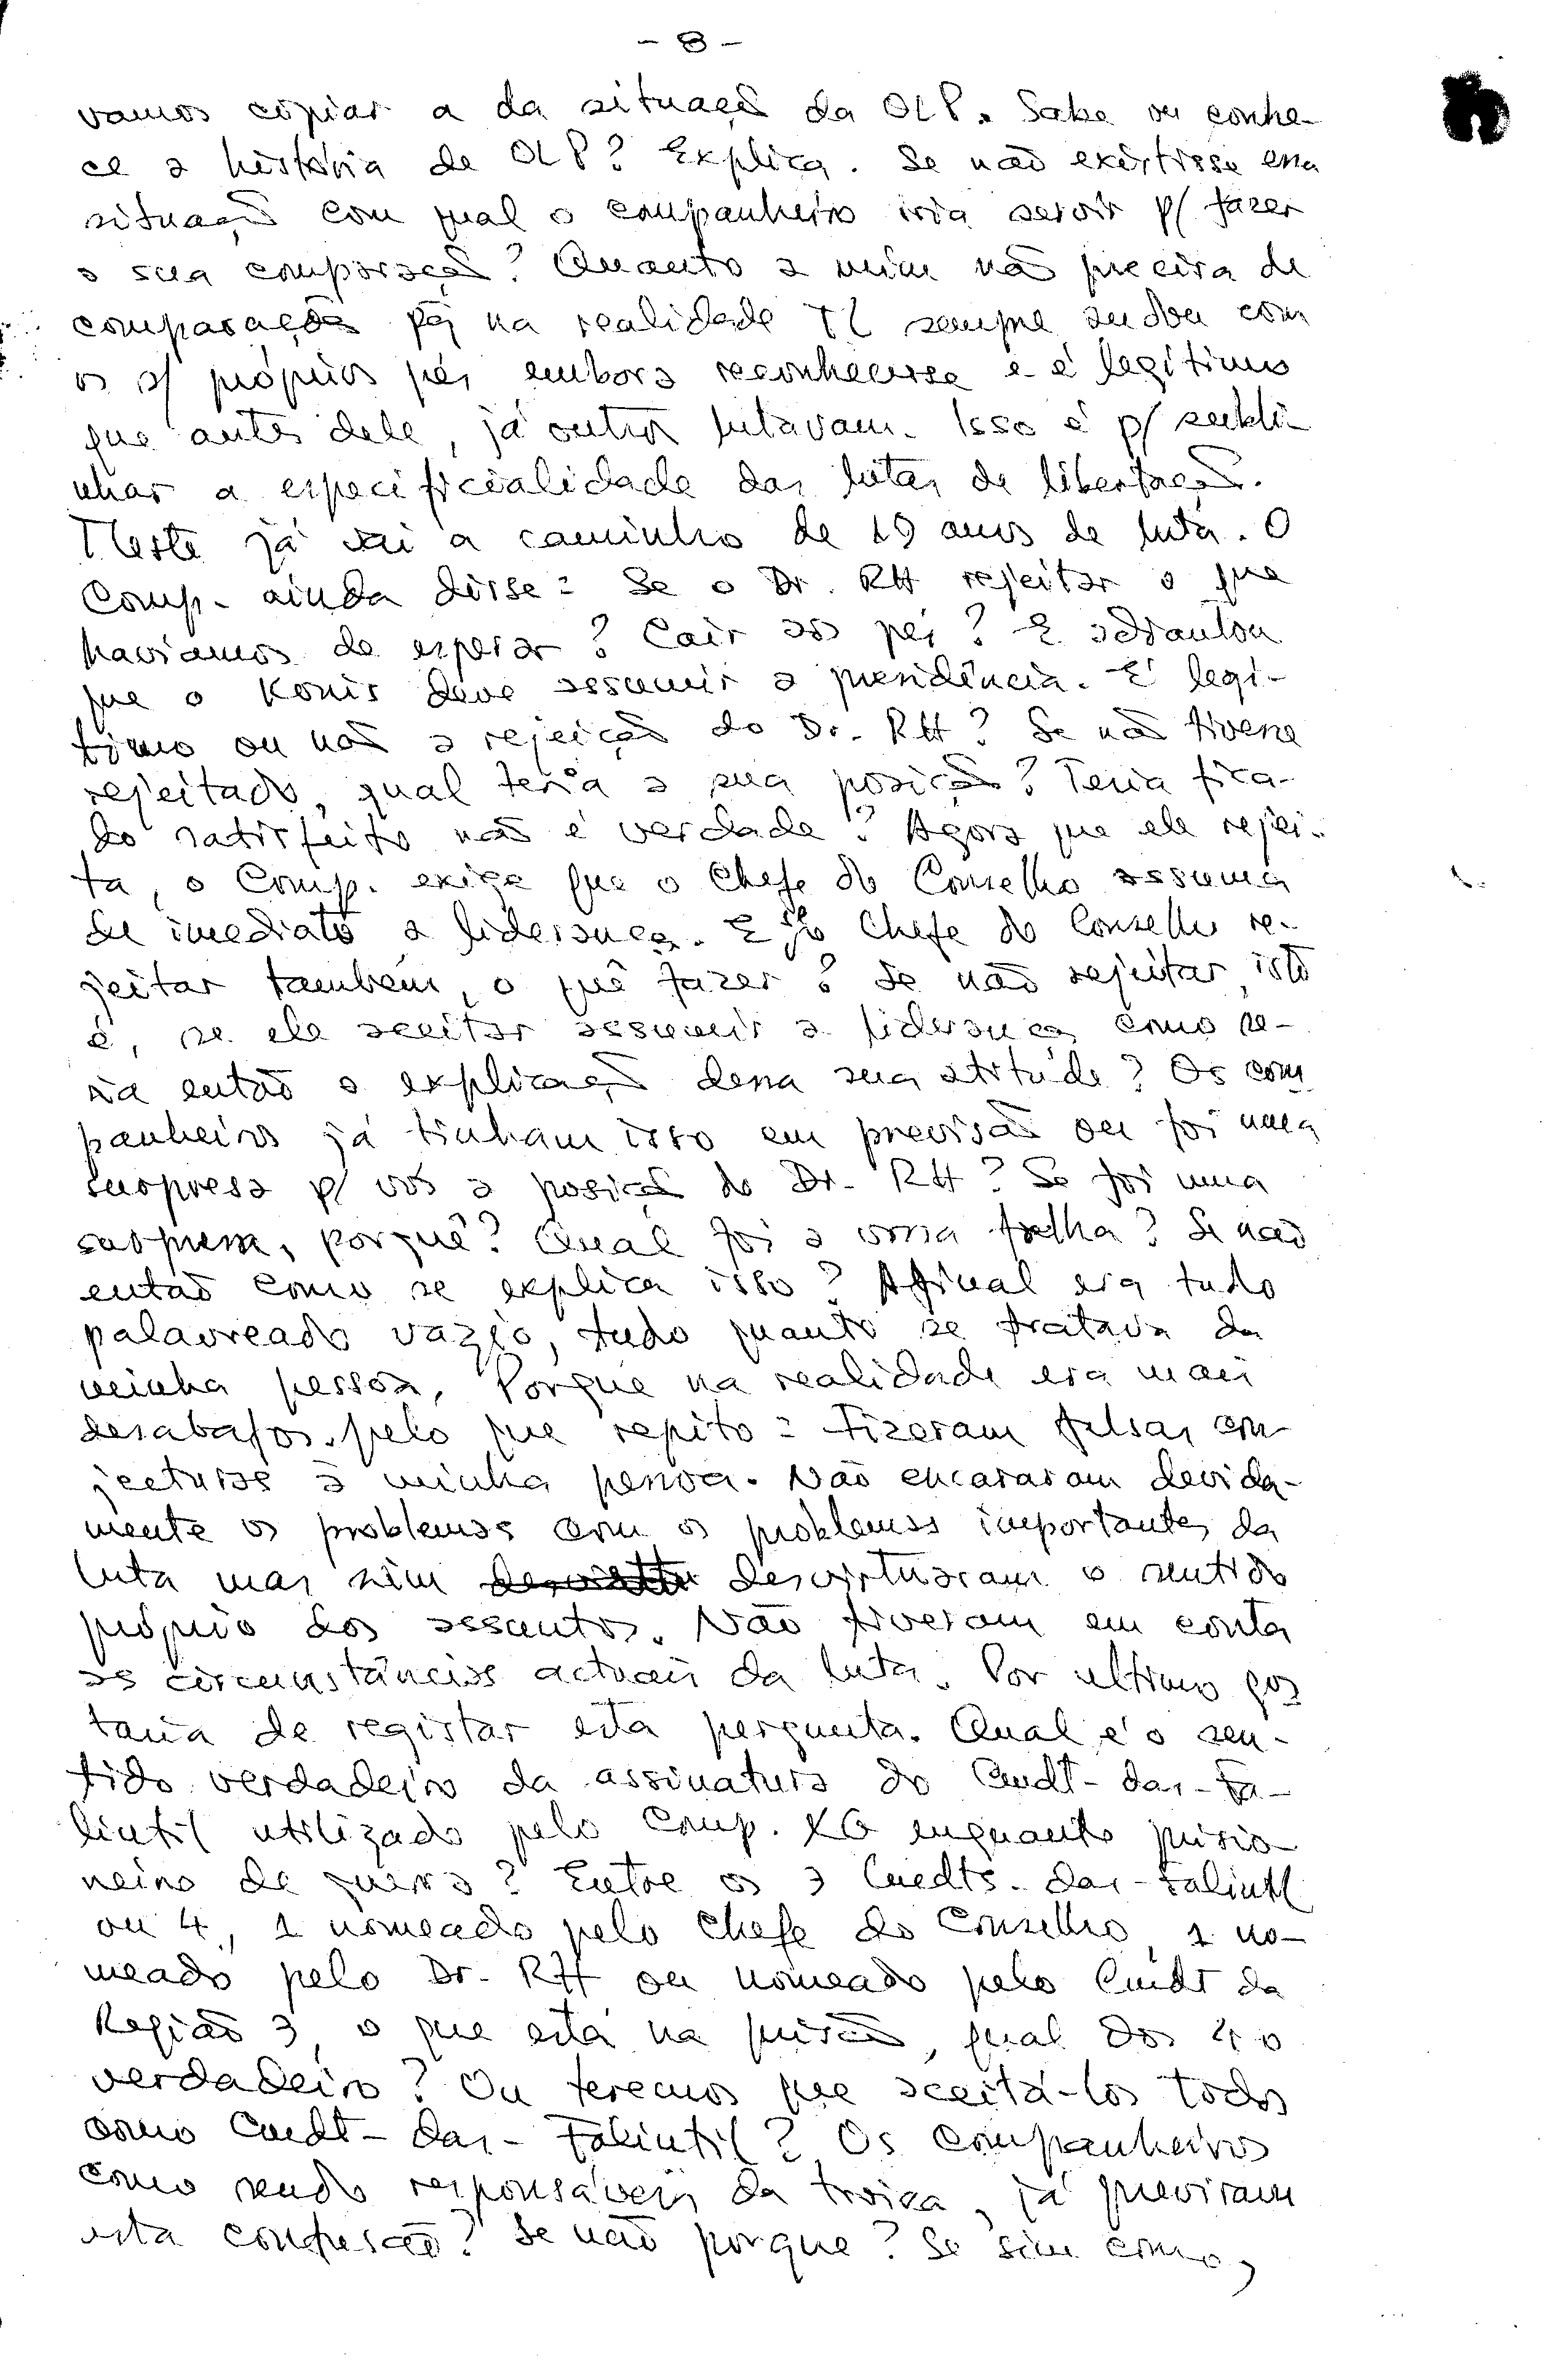 - 8 -
vamos copiar a da situação da OLP. Sabe ou conhe-
ce a história de OLP? Explica. Se não existisse essa
situação com qual o companheiro iria servir p/ fazer
a sua comparação? Quanto a mim não precisa de
comparação pq na realidade TL sempre andou com
os s/ próprios pés embora reconhecesse e é legítimo
que antes dele, já outros lutavam. Isso é p/ subli-
nhar a especificialidade das lutas de libertação.
TLeste já vai a caminho de 19 anos de luta. O
Comp. ainda disse: Se o Dr. RH rejeitar o que
havíamos de esperar? Cair aos pés? E adiantou
que o Konis deve assumir a presidência. É legí-
timo ou não a rejeição do Dr. RH? Se não tivesse
rejeitado, qual teria a sua posição? Teria fica-
do satisfeito não é verdade? Agora que ele rejei-
ta, o Comp. exige que o Chefe do Conselho assuma
de imediato a liderança. E se o Chefe do Conselho re-
jeitar também, o quê fazer? Se não rejeitar, isto
é, se ele aceitar assumir a liderança como se-
ria então a explicação dessa sua atitude? Os com
panheiros já tinham isso em previsão ou foi uma
surpresa p/ vós a posição do Dr. RH? Se foi uma
surpresa, porquê? Qual foi a vossa falha? Se não
então como se explica isso? Afinal era tudo
palavreado vazio, tudo quanto se tratava da
minha pessoa, Porque na realidade era mais
desabafos, pelo que repito: Fizeram falsas con-
jecturas à minha pessoa. Não encararam devida-
mente os problemas com os problemas importantes da
luta mas sim desvirtuaram o sentido
próprio dos assuntos. Não tiveram em conta
as circunstâncias actuais da luta. Por ultimo gos
taria de registar esta pergunta. Qual é o sen-
tido verdadeiro da assinatura do Cmdt-das-Fa-
lintil utilizado pelo Comp. XG enquanto prisio
neiro de guerra? Entre os 3 Cmdts-das-Falintil
ou 4, 1 nomeado pelo Chefe do Conselho, 1 no-
meado pelo Dr. RH ou nomeado pelo Cmdt da
Região 3, o que está na prisão, qual dos 4 o
verdadeiro? Ou teremos que aceitá-los todos
como Cmdt-das-Falintil? Os companheiros
como sendo responsáveis da troica, já previram
esta confusão? Se não porque? Se sim como,